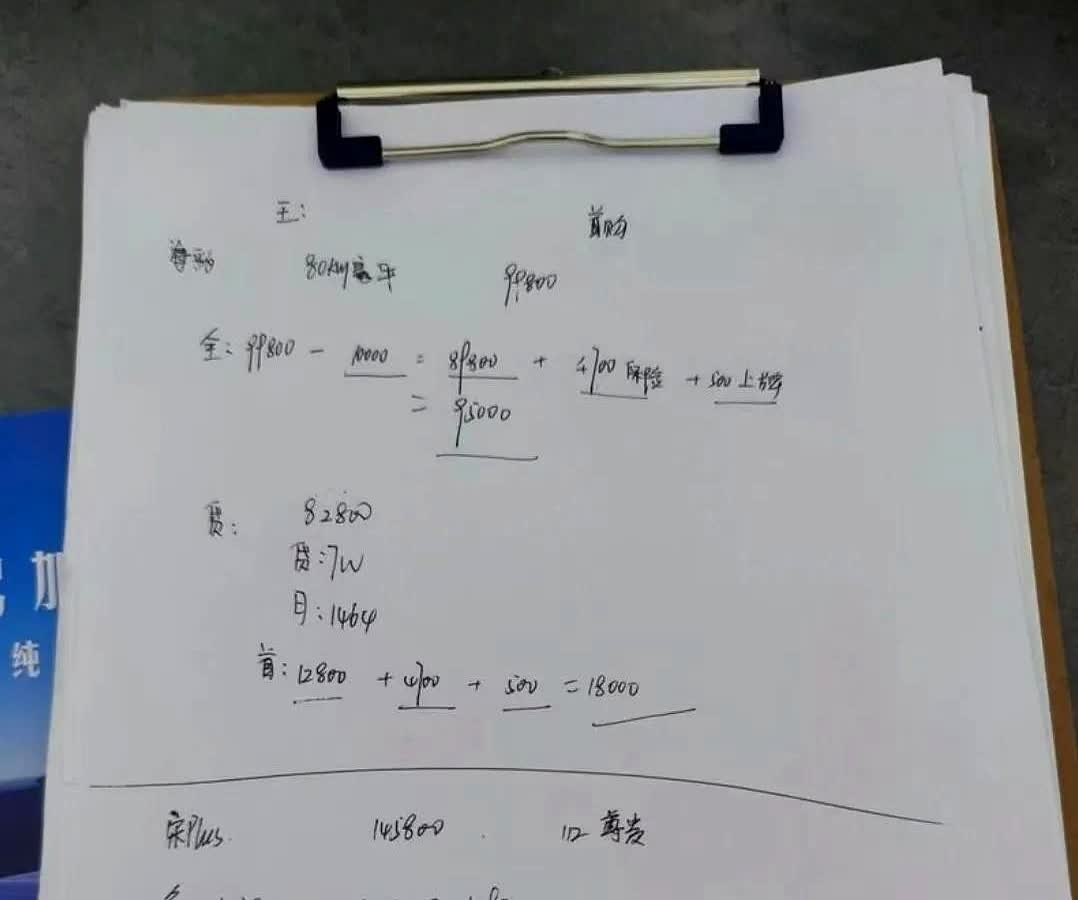 王:
首购
80KM豪华 99800
全: 99800 - 10000 = 89800 + 4700 保险 + 500 上牌
= 95000
贷: 82800
贷:7W
月:1464
首: 12800 + 4700 + 500 = 18000
宋Plus. 145800 112 尊贵
加
纯